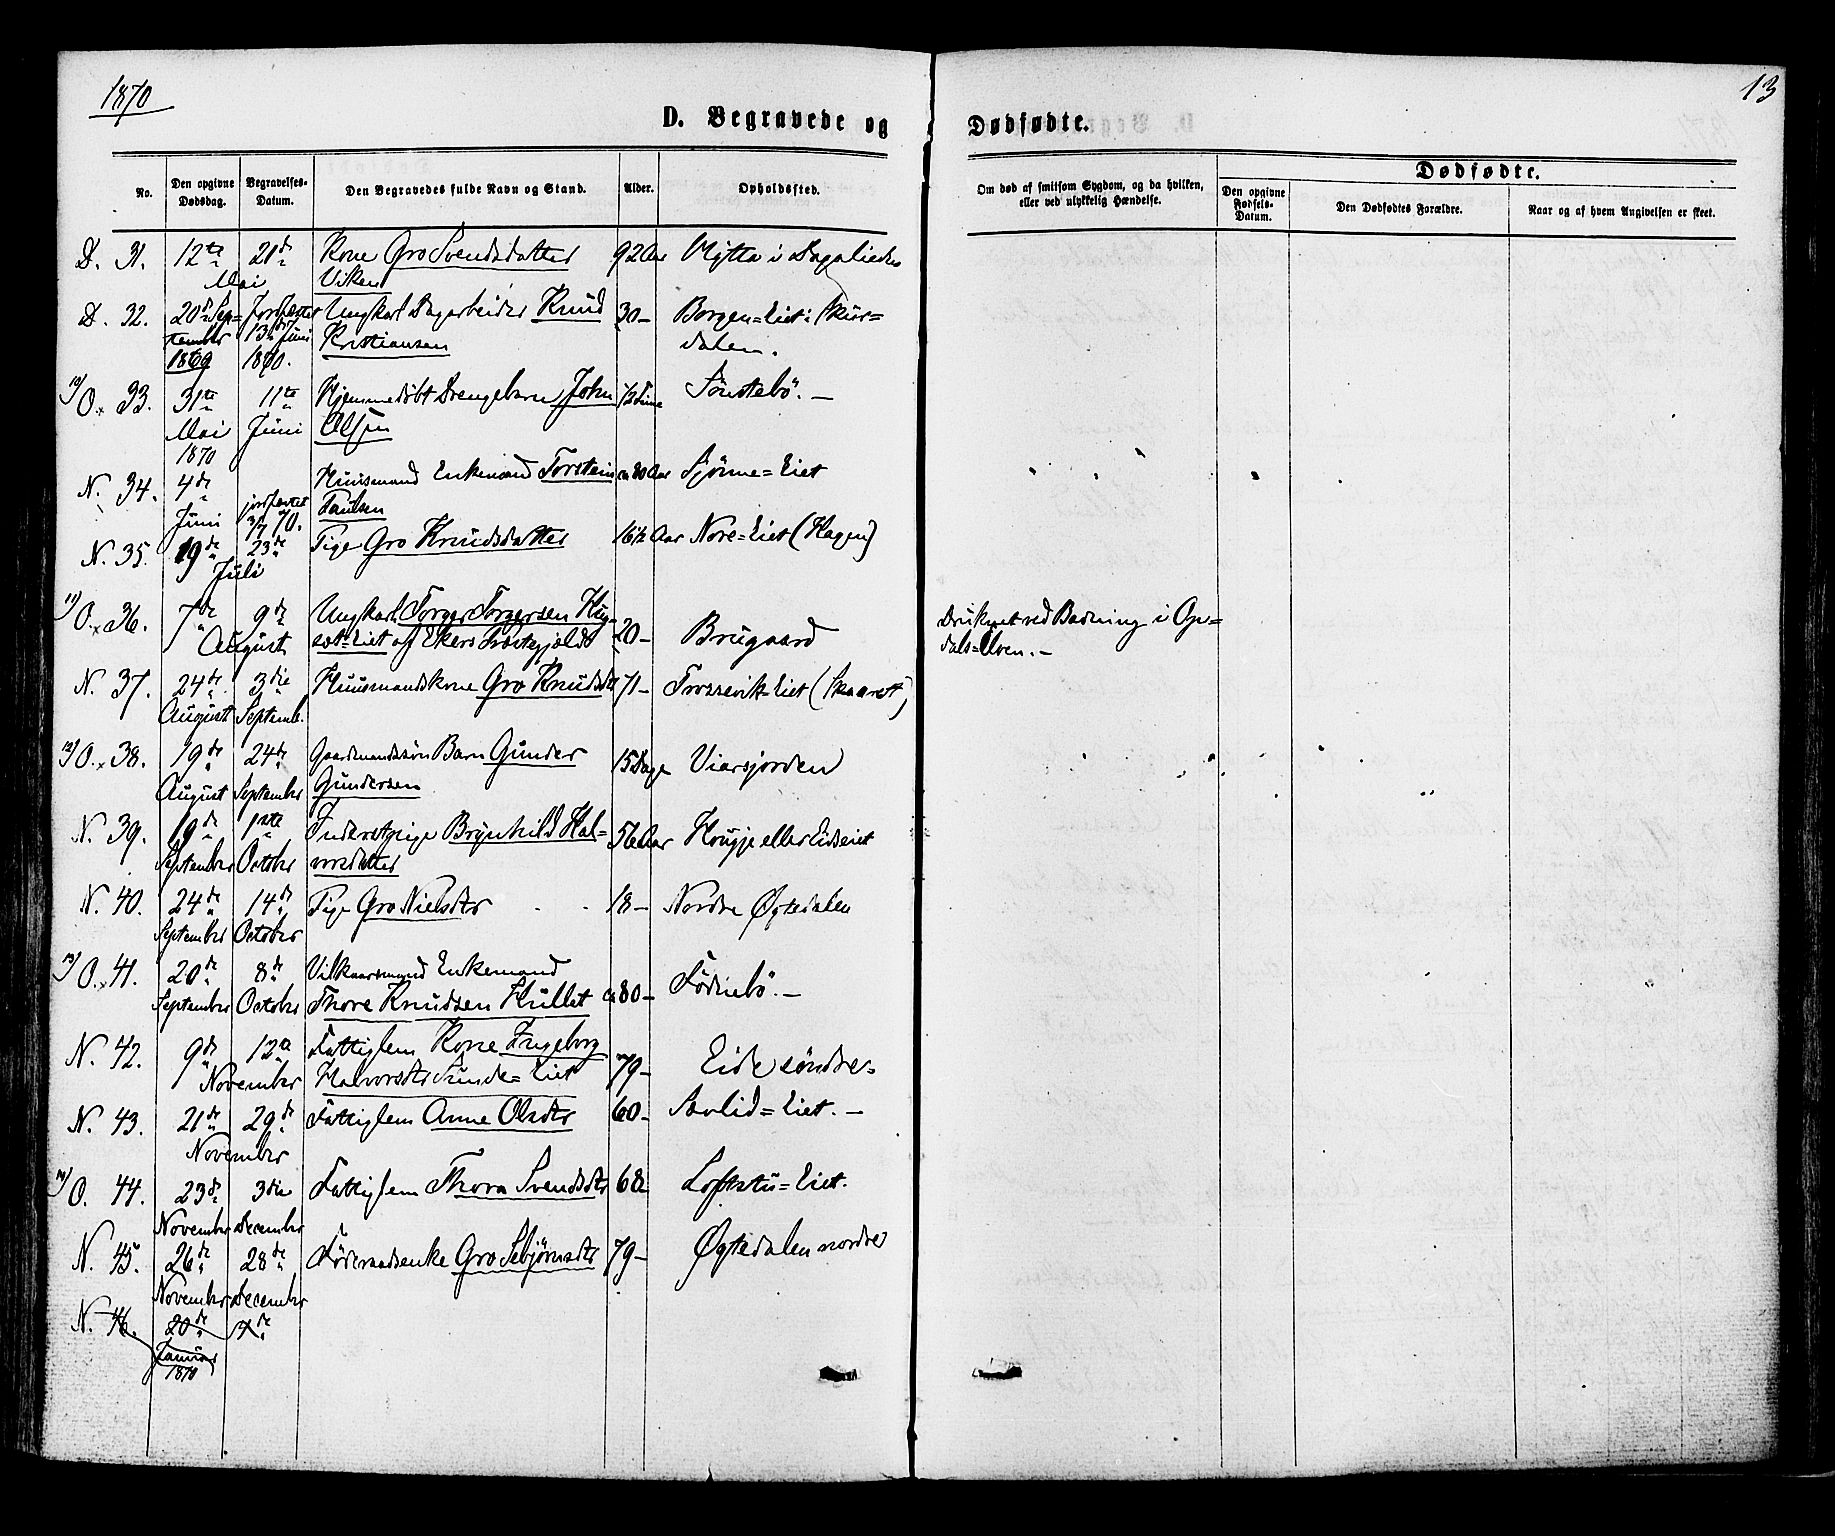 1870
13
D. Begravede og Dødfødte.
No.
Den opgivne Dødsdag.
Begravelses-Datum.
Den Begravedes fulde Navn og Stand.
Alder.
Opholdssted.
Om død af smitsom Sygdom, og da hvilken, eller ved ulykkelig Hændelse.
Dødfødte.
Den opgivne Fødsels-Datum.
Den Dødfødtes Forældre.
Naar og af hvem Angivelsen er skeet.
D. 31. 12te 21de Kone Gro Svendsdatter 92 Aar Mytta i Dagaliedes
Mai Viken
D. 32. 20de Sep= Jordfæstet Ungkarl Dagarbeider Knud 30 – Borgen=Eiet i Skur=
tember 13de Juni Kristiansen dalen.
1869 1870.
O. 33. 31te 11te Hjemmedøbt Drengebarn John 1/2 Time Sønstebö. –
Mai Juni Olsen
1870
N. 34. 4de Huusmand Enkemand Torstein ca 80 Aar Sjönne=Eiet
Juni jordfæstet 3/7 70. Paulsen
N. 35. 19de 23de Pige Gro Knudsdatter 16 1/2 Aar Nore=Eiet (Hagen)
Juli
O. 36. 7de 9de Ungkarl Torger Torgersen Hug= 20 – Brugaard Druknet ved Badning i Op=
August sæt=Eiet af Ekers Præstegjeld dals=Elven. –
N. 37. 24de 3die Huusmandskone Gro Knudsdtr 71 – Frossevik Eiet (Skaaret)
August Septemb.
O. 38. 19de 24de Gaardmandssön Barn Gunder 15 Dage Viarsjorden
August September Gundersen
N. 39. 19de 1ste Inderstpige Brynhild Hal= 56 Aar Hougje eller Eidseiet
September October vorsdatter
N. 40. 24de 14de Pige Gro Nielsdtr 18 – Nordre Øgtedalen
September October
O. 41. 20de 8de Vilkaarsmand Enkemand
September October Thore Knudsen Hullet ca 80 – Födnebö. –
N. 42. 9de 12te Fattiglem Kone Ingeborg 79 – Eide söndre=
November Halvorsdtr Sunde=Eiet
N. 43. 21de 29de Fattiglem Anne Olsdtr 60 – Savlid=Eiet. –
November
O. 44. 23de 3die Fattiglem Thora Svendsdtr 68 Loftstu=Eiet.
November December
N. 45. 26de 28de Föderaadsenke Gro Sebjörnsdtr 79 – Øgtedalen nordre
November December
N. 46. 20de 7de
Januar
1870